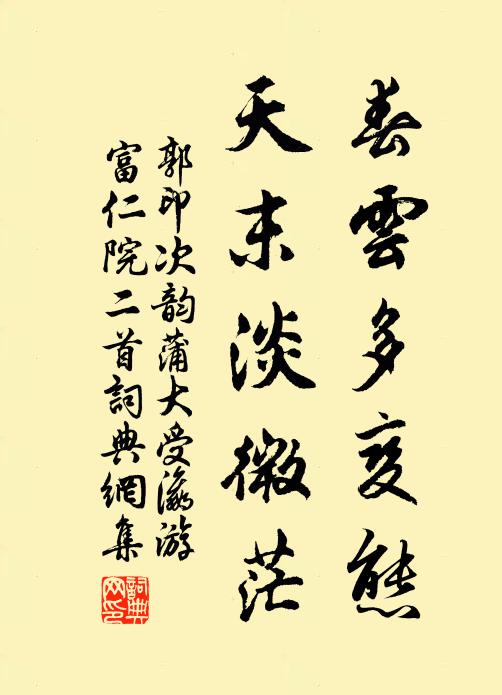 春雲多变態
天末淡微茫
郭印次韵蒲大受瀛游
富仁院二首詞典網集
詞典
网印